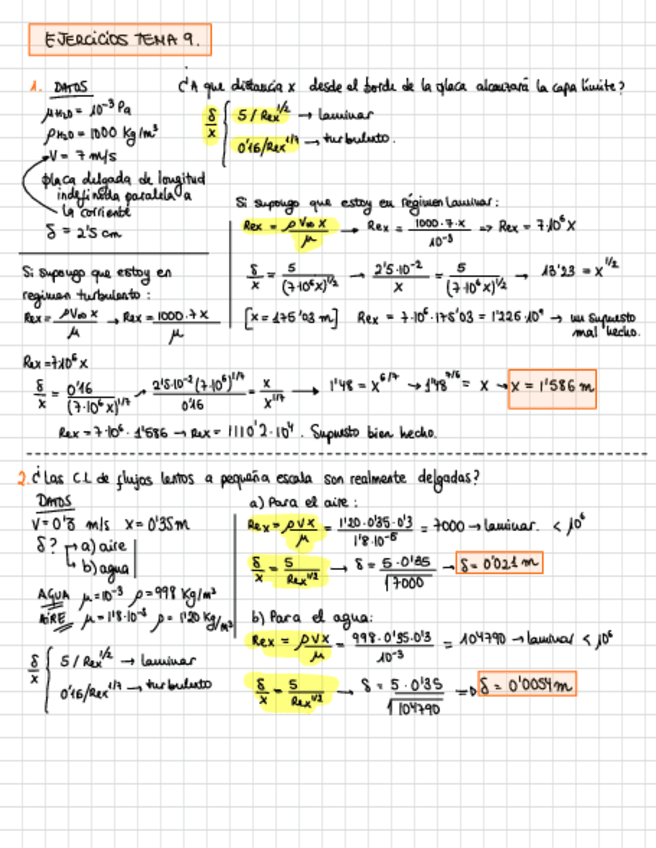 EJERCICIOS TEMA 9.
1. DATOS
¿A que distancia x desde el borde de la placa alcanzará la capa límite?
μH2O = 10⁻³ Pa
ρH2O = 1000 Kg/m³
V = 7 m/s
placa delgada de longitud
indefinida paralela a
la corriente
δ = 2'5 cm
δ/x { 5/Rex^1/2 → laminar
0'16/Rex^1/7 → turbulento.
Si supongo que estoy en régimen laminar:
Rex = ρV∞x/μ → Rex = 1000·7·x/10⁻³ => Rex = 7·10⁶x
δ/x = 5/(7·10⁶x)^1/2 → 2'5·10⁻²/x = 5/(7·10⁶x)^1/2 → 13'23 = x^1/2
[x = 175'03 m] Rex = 7·10⁶·175'03 = 1'225·10⁹ → un supuesto
mal hecho.
Si supongo que estoy en
regimen turbulento:
Rex = ρV∞x/μ → Rex = 1000·7x/μ
Rex = 7·10⁶x
δ/x = 0'16/(7·10⁶x)^1/7 → 2'5·10⁻²(7·10⁶)^1/7/0'16 = x/x^1/7 → 1'48 = x^6/7 → 1'48^7/6 = x → x = 1'586 m
Rex = 7·10⁶·1'586 → Rex = 1110'2·10⁴. Supuesto bien hecho.
2. ¿Las C.L de flujos lentos a pequeña escala son realmente delgadas?
DATOS
V = 0'3 m/s x = 0'35m
δ? → a) aire
→ b) agua
AGUA μ=10⁻³ ρ=998 Kg/m³
AIRE μ=1'8·10⁻⁵ ρ=1'20 Kg/m³
δ/x { 5/Rex^1/2 → laminar
0'16/Rex^1/7 → turbulento
a) Para el aire:
Rex = ρVx/μ = 1'20·0'35·0'3/1'8·10⁻⁵ = 7000 → laminar. < 10⁶
δ/x = 5/Rex^1/2 → δ = 5·0'35/√7000 → δ = 0'021 m
b) Para el agua:
Rex = ρVx/μ = 998·0'35·0'3/10⁻³ = 104790 → laminar < 10⁶
δ/x = 5/Rex^1/2 → δ = 5·0'35/√104790 => δ = 0'0054m